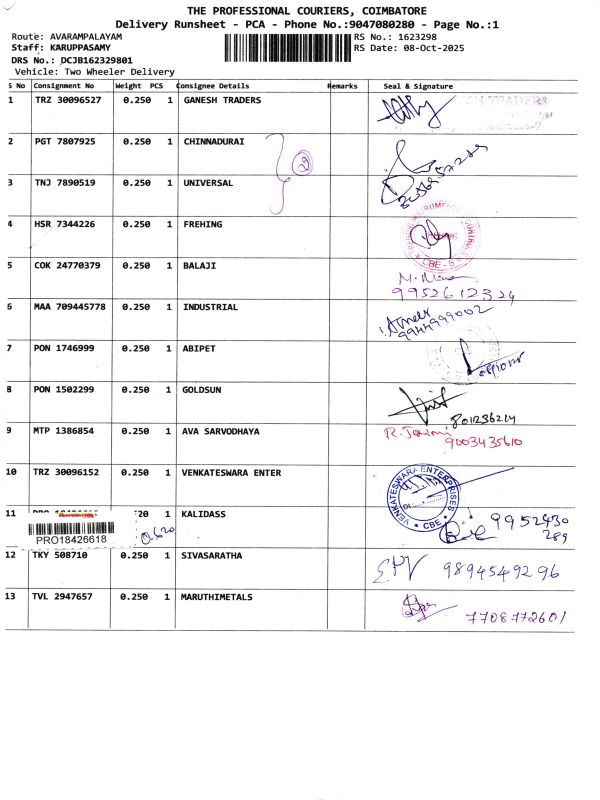 THE PROFESSIONAL COURIERS, COIMBATORE
Delivery Runsheet - PCA - Phone No.:9047080280 - Page No.:1
Route: AVARAMPALAYAM RS No.: 1623298
Staff: KARUPPASAMY RS Date: 08-Oct-2025
DRS No.: DCJB162329801
Vehicle: Two Wheeler Delivery
S No Consignment No Weight PCS Consignee Details Remarks Seal & Signature
1 TRZ 30096527 0.250 1 GANESH TRADERS
2 PGT 7807925 0.250 1 CHINNADURAI
3 TNJ 7890519 0.250 1 UNIVERSAL
4 HSR 7344226 0.250 1 FREHING
CBE-6
5 COK 24770379 0.250 1 BALAJI
9952612324
6 MAA 709445778 0.250 1 INDUSTRIAL
9944999002
7 PON 1746999 0.250 1 ABIPET
8 PON 1502299 0.250 1 GOLDSUN
801236214
9 MTP 1386854 0.250 1 AVA SARVODHAYA
9003435610
10 TRZ 30096152 0.250 1 VENKATESWARA ENTER
VENKATESWARA ENTERPRISES
CBE
11 20 1 KALIDASS 9952430
289
PRO18426618 0.620
12 TKY 508710 0.250 1 SIVASARATHA 9894549296
13 TVL 2947657 0.250 1 MARUTHIMETALS
7708772601